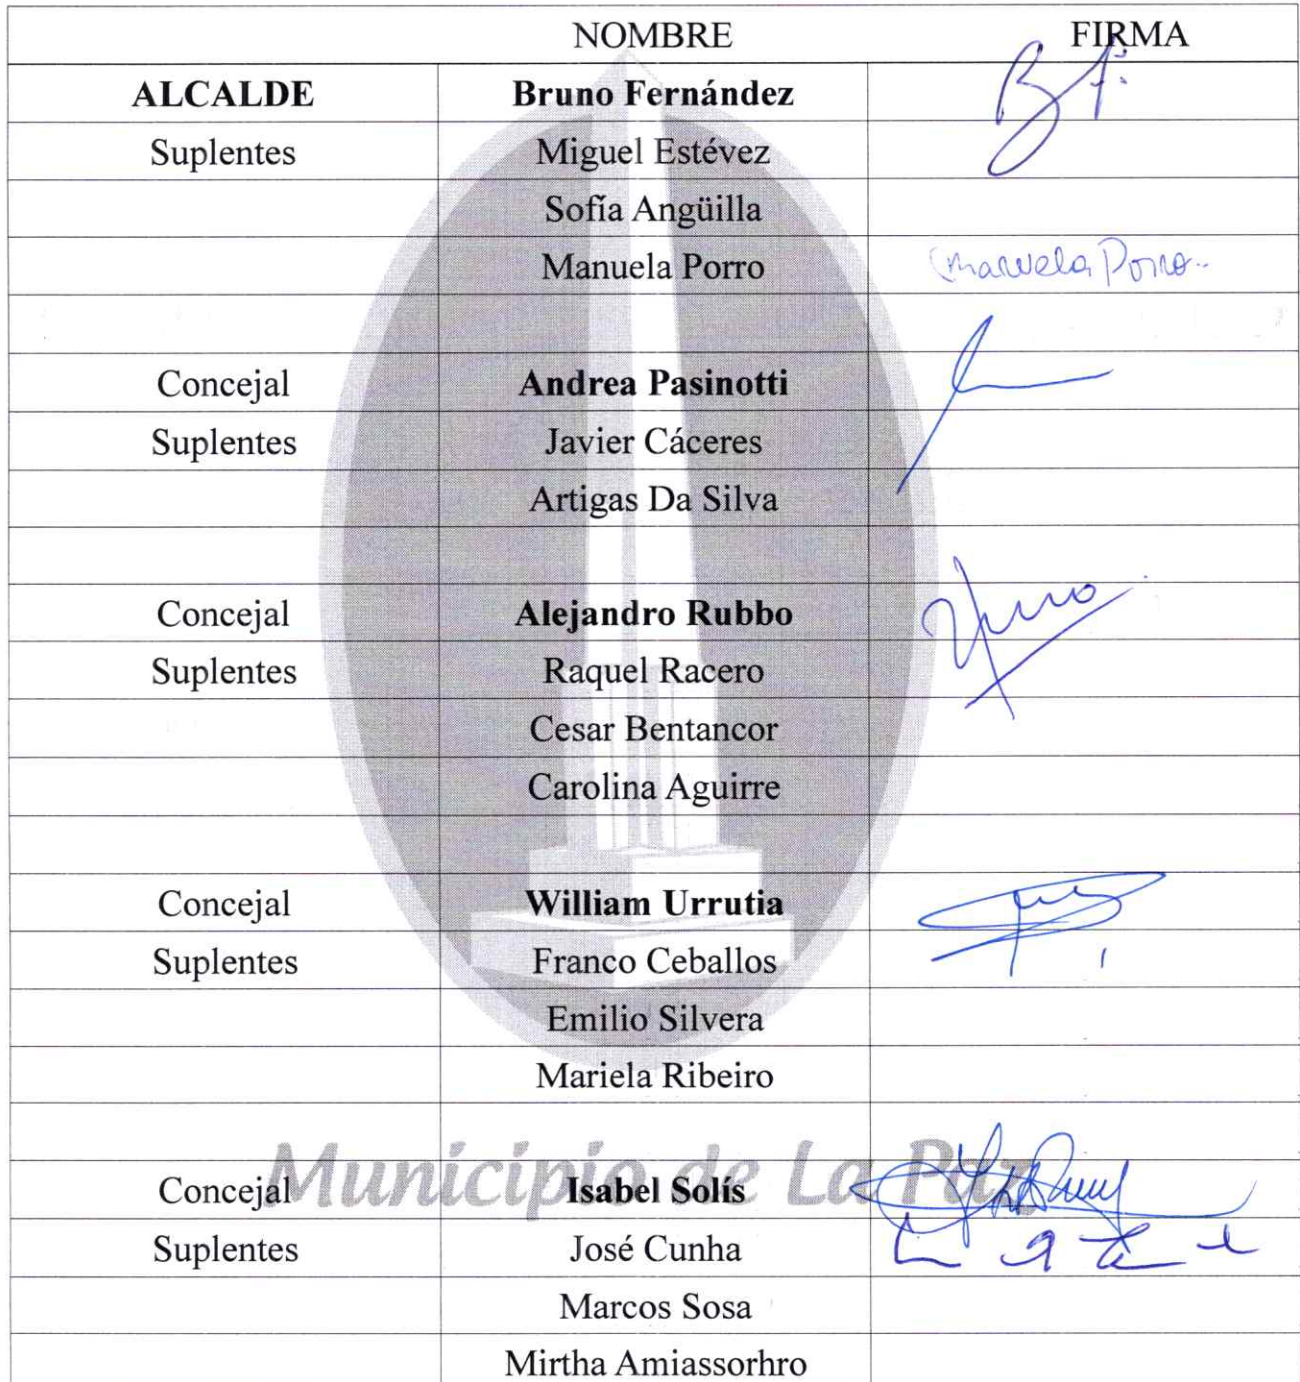 NOMBRE FIRMA
ALCALDE Bruno Fernández
Suplentes Miguel Estévez
Sofía Angüilla
Manuela Porro Manuela Porro
Concejal Andrea Pasinotti
Suplentes Javier Cáceres
Artigas Da Silva
Concejal Alejandro Rubbo
Suplentes Raquel Racero
Cesar Bentancor
Carolina Aguirre
Concejal William Urrutia
Suplentes Franco Ceballos
Emilio Silvera
Mariela Ribeiro
Municipio de La Paz
Concejal Isabel Solís
Suplentes José Cunha
Marcos Sosa
Mirtha Amiassorhro